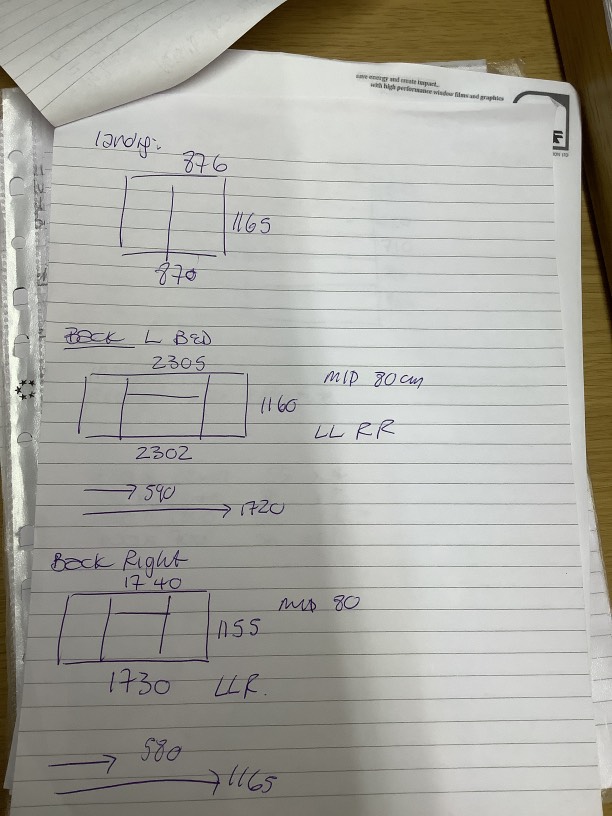 save energy and create impact...
with high performance window films and graphics
Landig:
876
1165
870
BACK L BED
2305
MID 80cm
1160
LL RR
2302
590
1720
BACK Right
1740
MID 80
1155
1730 LLR.
580
1165